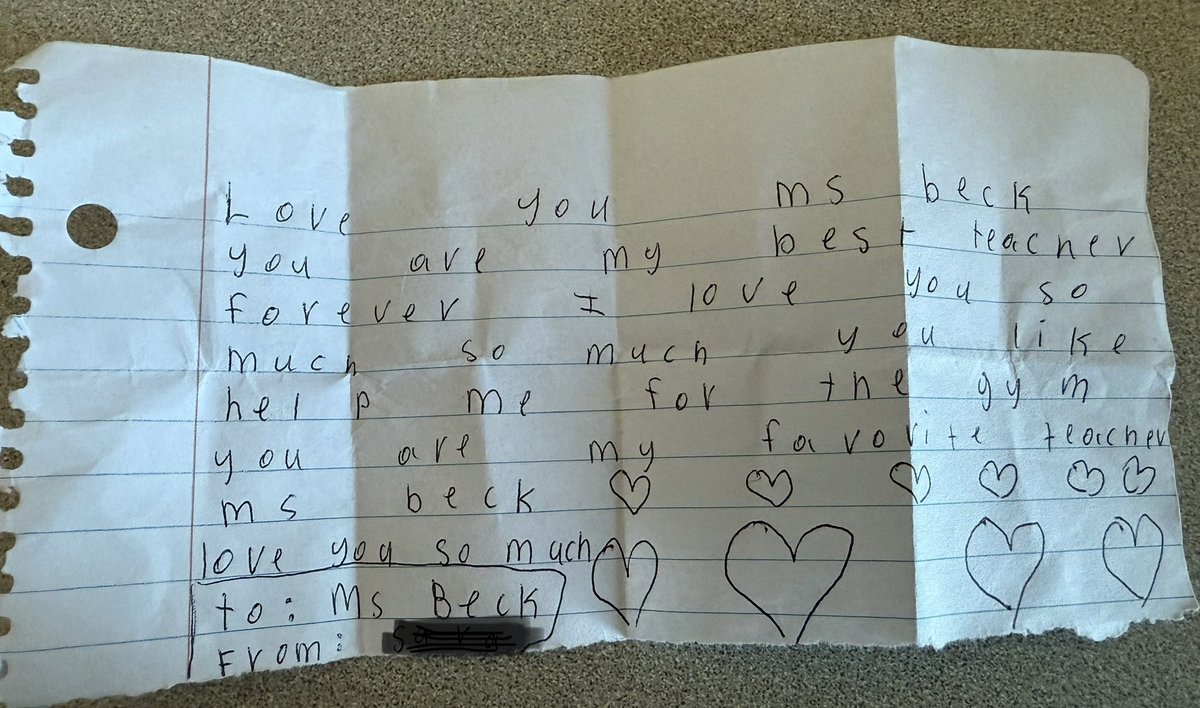 Love you ms beck
you are my best teacher
forever I love you so
much so much you like
help me for the gym
you are my favorite teacher
ms beck
love you so much
to: Ms Beck
From: